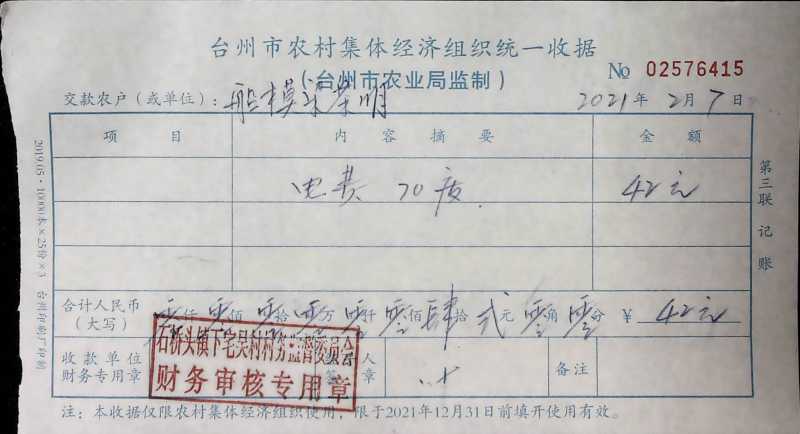 台州市农村集体经济组织统一收据
（台州市农业局监制）
No 02576415
交款农户（或单位）：船模 荣明
2021年2月7日
项 目 内 容 摘 要 金 额
电费 70度 42元
合计人民币（大写） 零仟零佰零拾零万零仟零佰肆拾贰元零角零分 ￥42元
石桥头镇下宅吴村村务监督委员会
财务审核专用章
收款单位
财务专用章
人
章
备注
注：本收据仅限农村集体经济组织使用，限于2021年12月31日前填开使用有效。
第三联 记账
2019.05·10000本×25份×3